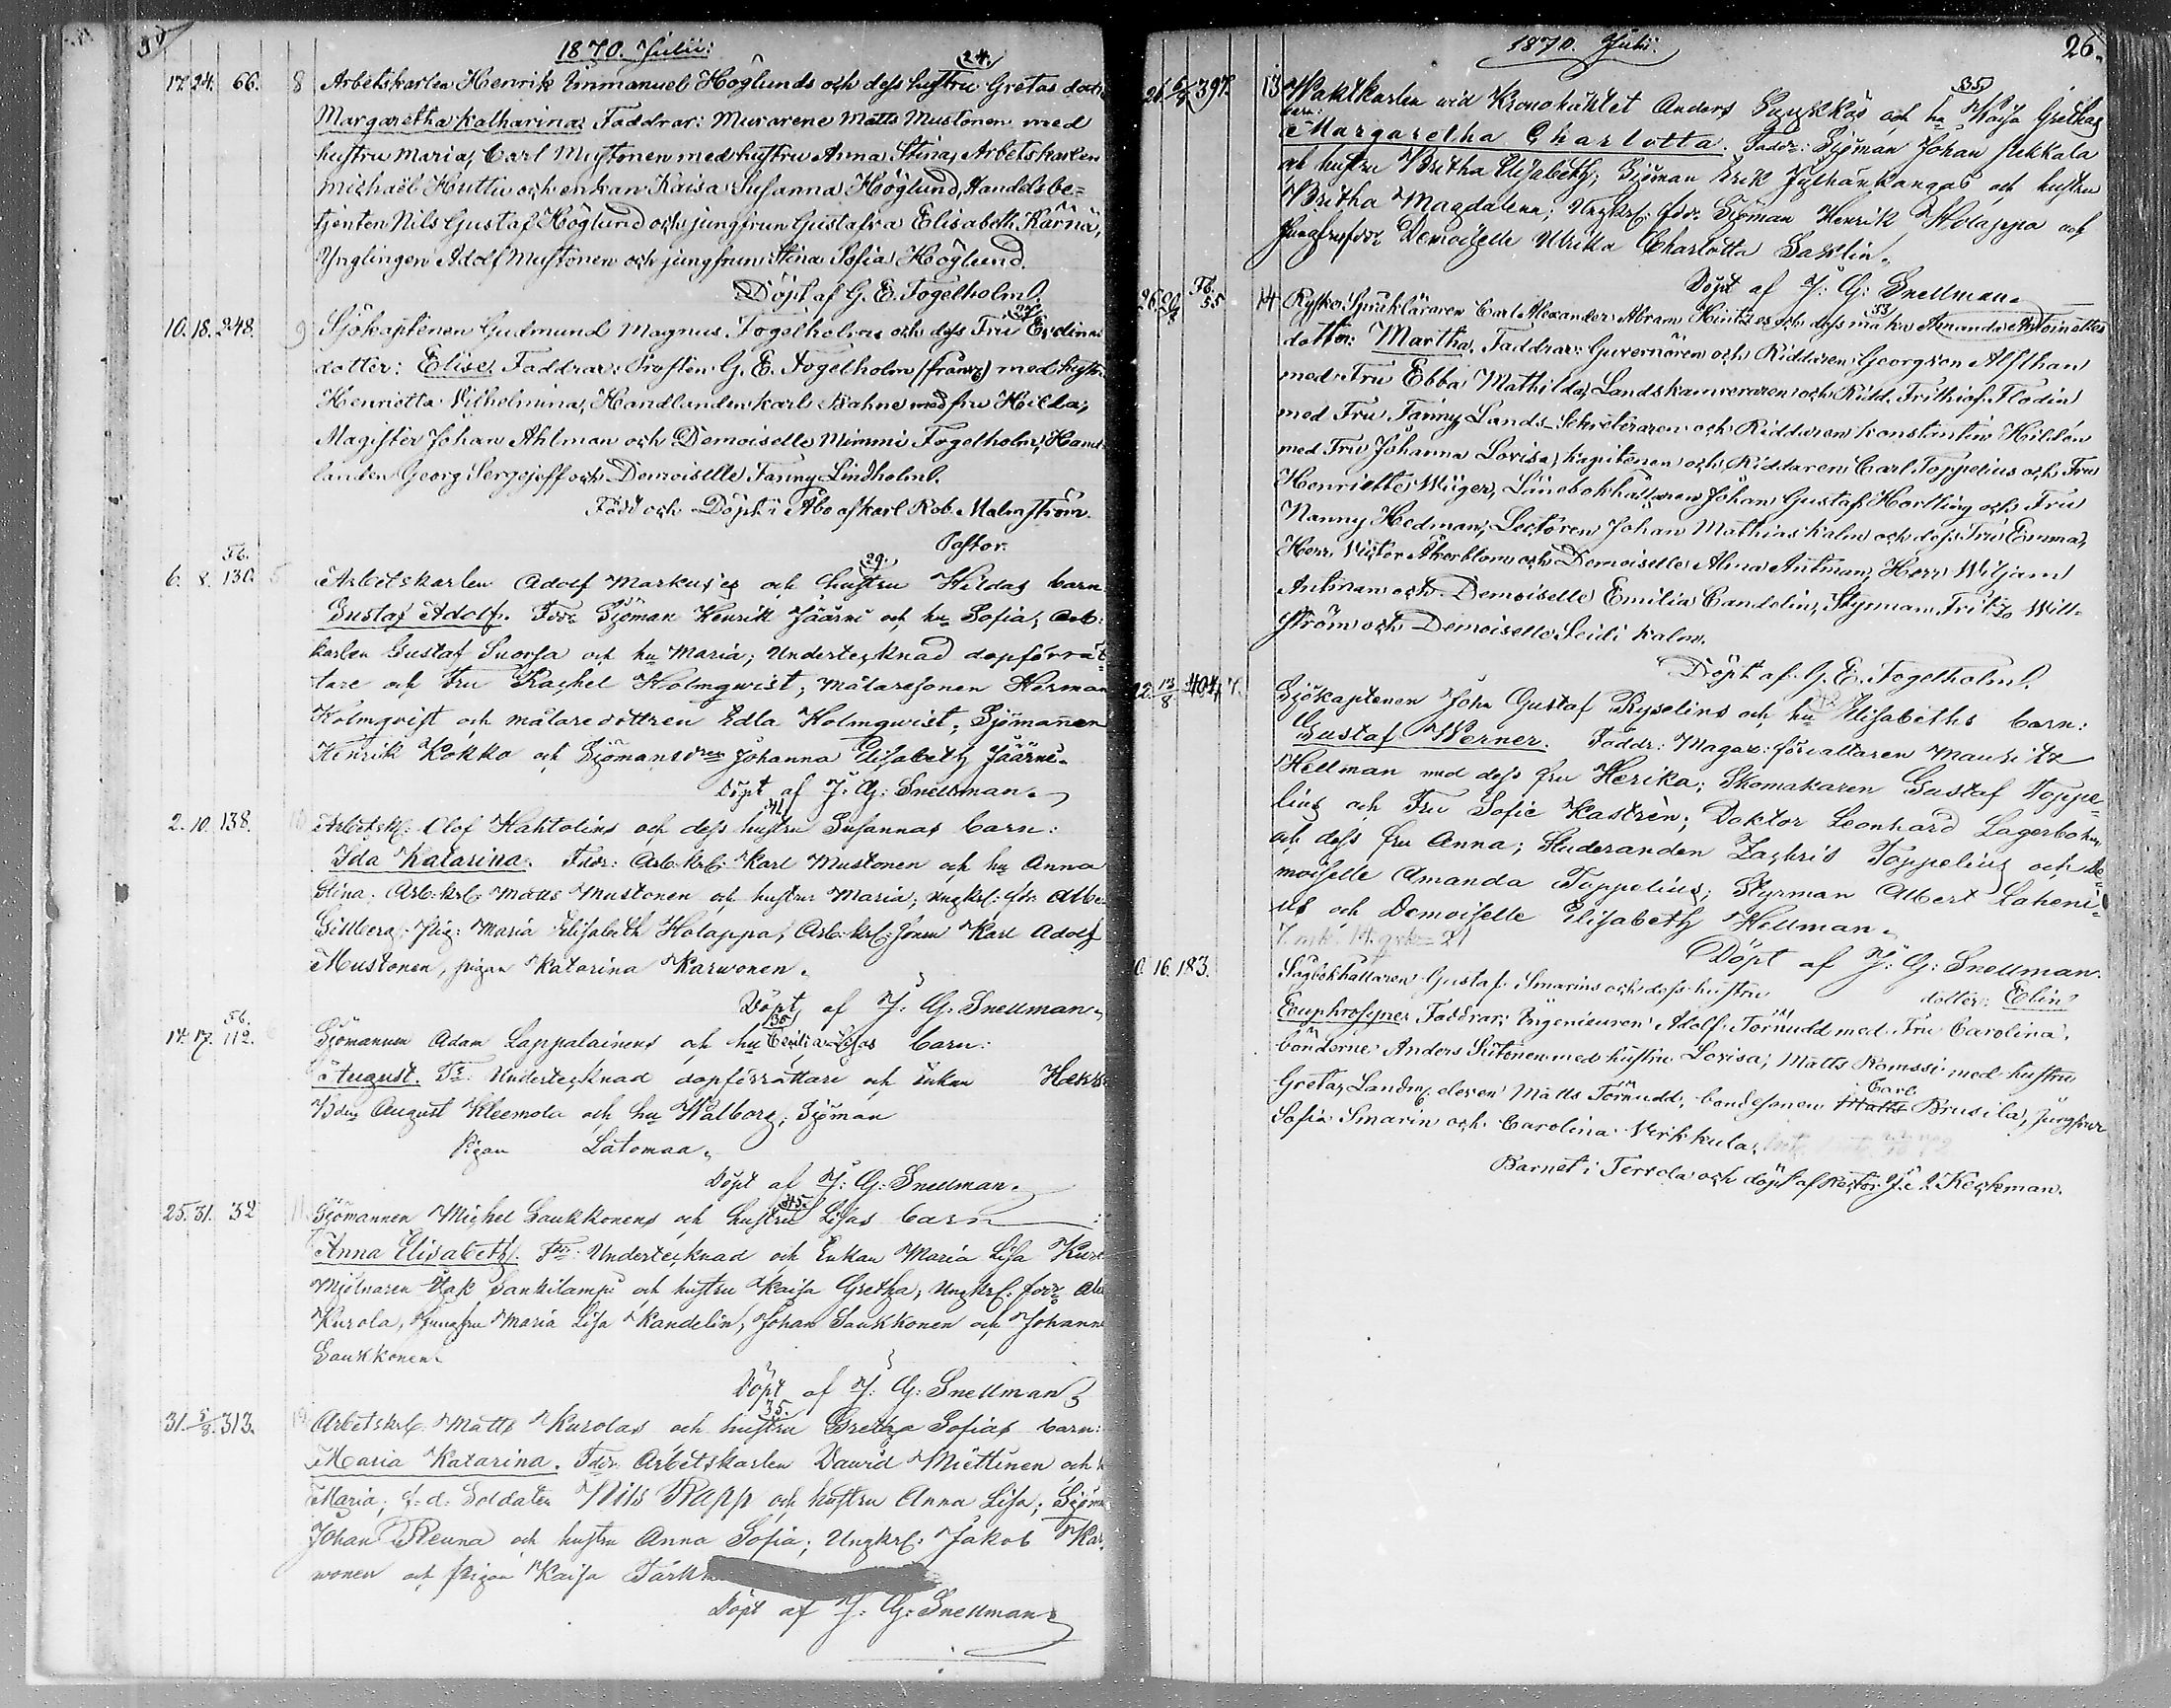 1870. Julii:
24.
17. 24. 66. 8 Arbetskarlen Henrik Emmanuel Höglunds och dess hustru Gretas dott:
Margaretha Katharina; Faddrar: Murarene Matts Mustonen med
hustru Maria, Carl Mustonen med hustru Anna Stina, Arbetskarlen
Michaël Huttu och enkan Kaisa Susanna Höglund, Handelsbe=
tjenten Nils Gustaf Höglund och jungfrun Gustafva Elisabeth Kärnä,
Ynglingen Adolf Mustonen och jungfrun Stina Sofia Höglund.
Döpt af G. E. Fogelholm.
10. 18. 248. 9 Sjökaptenen Gudmund Magnus Fogelholms och dess Fru
dotter: Elise, Faddrar: Prosten G. E. Fogelholm med hustru
Henrietta Vilhelmina, Handlanden Karl Bahne med fru Hilda,
Magister Johan Ahlman och Demoiselle Mimmi Fogelholm, Hand
landen Georg Sergejeff och Demoiselle Fanny Lindholm.
Född och Döpt i Åbo af Karl Rob. Malmström.
Pastor.
Fb. 29.
6. 8. 130. 5 Arbetskarlen Adolf Markus's och hustru Hildas barn
Gustaf Adolf. Fddr Sjöman Henrik Jäärni och hu Sofia; Arb:
karlen Gustaf Suorsa och hu Maria; Undertecknad dopförrät
tare och Fru Rachel Holmqwist; Målaresonen Herman
Holmqvist och målaredottren Edla Holmqwist; Sjömannen
Henrik Kokko och Sjömansdren Johanna Elisabeth Jäärni.
Döpt af J. G: Snellman.
41
2. 10. 138. 10 Arbetsk: Olof Hahtolins och dess hustru Susannas barn:
Ida Katarina. Fddr: Arb. krl: Karl Mustonen och hu Anna
Stina; Arb: krl: Matts Mustonen och hustru Maria; Ungkrl:
Maria Elisabeth Holappa, Arb: krl: sonen Karl Adolf
Mustonen, pigan Katarina Karwonen.
Döpt af J: G. Snellman.
Fb.
14. 17. 112. 6 Sjömannen Adam Lappalainens och hu barn:
August. Fr: Undertecknad dopförrättare och enkan
August Kleemola och hu Walborg; Sjöman
Pigan Latomaa.
Döpt af J: G: Snellman.
25. 31. 32 11 Sjömannen Michel Saukkonens och hustru Lisas barn:
Anna Elisabeth. Fdr: Undertecknad och Enkan Maria Lisa
Mjölnaren Isak Sankilampi och hustru Kaisa Gretha; Ungkrl:
Kurola, Jungfru Maria Lisa Kandelin, Johan Saukkonen och Johanna
Saukkonen.
Döpt af J: G: Snellman
35.
31. 5/8. 313. 12 Arbetskrl: Matts Kurolas och hustru Gretha Sofias barn:
Maria Katarina. Fddr. Arbetskarlen Dawid Miettinen och
Maria; f: d: Soldaten Nils Rapp och hustru Anna Lisa;
Johan Reuna och hustru Anna Sofia; Ungkrl: Jakob Kar
wonen och pigan Kaisa
Döpt af J: G: Snellman
1870. Julii. 26.
35
397. 13 Waktkarlen vid Kronohäktet Anders och hu Kaisa Grethas
barn:
Margaretha Charlotta. Faddr: Sjöman Johan Pekkala
och hustru Britha Elisabeth; Sjöman Erik Jylhänkangas och hustru
Britha Magdalena; Ungkrl: Sjöman Henrik Holappa och
Demoiselle Ulrika Charlotta Saxlin.
Döpt af J: G: Snellman.
Fb. 33
26. 20/8 55 14 Ryska Språkläraren Carl Alexander Abram Hintzes och dess maka Amanda Antoinettes
dotter: Martha, Faddrar: Guvernören och Riddaren Georg von Alfthan
med Fru Ebba Mathilda, Landskamreraren och Ridd. Frithiof Flodin
med Fru Fanny, Lands Sekreteraren och Riddaren Konstantin Hildén
med Fru Johanna Lovisa, Kapitenen och Riddaren Carl Toppelius och Fru
Henriette Länebokhållaren Johan Gustaf Hortling och Fru
Nanny Hedman, Lectoren Johan Mathias Kalm och dess Fru Emma,
Herr Victor Åkerblom och Demoiselle Alma Antman, Herr Wiljam
Antman och Demoiselle Emilia Candelin, Styrman Fritz Will-
ström och Demoiselle Seidi Kalm.
Döpt af G. E. Fogelholm.
13/8 404 7. Sjökaptenen John Gustaf Ryselins och hu Elisabeths barn:
Gustaf Werner. Faddr: Magas: förvaltaren Mauritz
Hellman med dess fru Herika; Skomakaren Gustaf Toppe
lius och Fru Sofie Kastrèn; Doktor Leonhard Lagerbohm
och dess fru Anna; Studeranden Zachris Toppelius och De=
moiselle Amanda Toppelius; Styrman Albert Laheni=
us och Demoiselle Elisabeth Hellman.
Döpt af J: G: Snellman.
16. 183. Sågbokhållaren Gustaf Smarins och dess hustru dotter: Elin
Euphrosyne; Faddrar: Ingenieuren Adolf Törnudd med Fru Carolina,
bönderne Anders Siitonen med hustru Lovisa; Matts Romssi med hustru
Greta, Matts Törnudd, bondesonen Matts Carl Brusila, Jungfrur
Sofia Smarin och Carolina Verkkula;
Barnet i Tervola och döpt af Pastor Keckman.